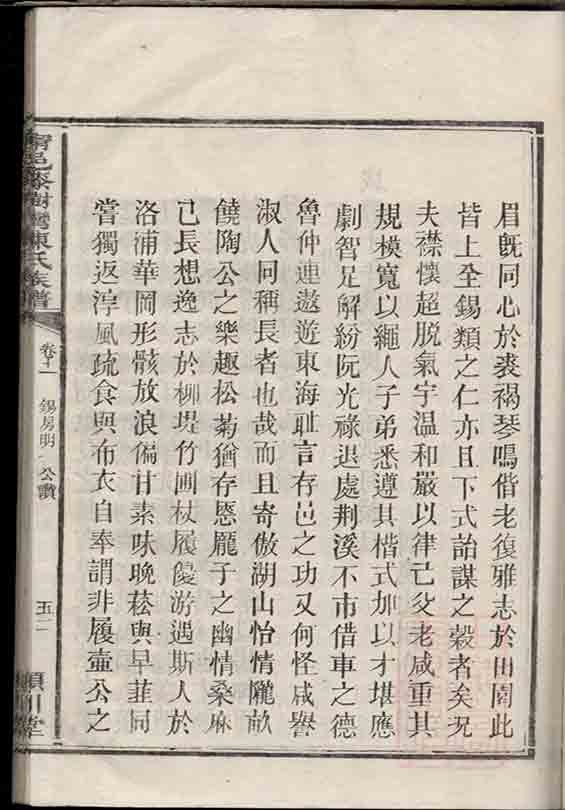 眉既同心於裘褐琴鳴偕老復雅志於田園此
皆上全錫類之仁亦且下式詒謀之榖者矣况
夫襟懷超脫氣宇温和嚴以律己父老咸重其
規模寬以繩人子弟悉遵其楷式加以才堪應
劇智足解紛阮光祿退處荆溪不市借車之德
魯仲連遨遊東海耻言存邑之功又何怪咸譽
淑人同稱長者也哉而且寄傲湖山怡情隴畝
饒陶公之樂趣松菊猶存愍龎子之幽情桑麻
己長想逸志於柳堤竹圃杖履優游遇斯人於
洛浦華岡形骸放浪偏甘素味晚菘與早韮同
嘗獨返淳風疏食與布衣自奉謂非履壷公之
甯邑漆樹灣陳氏族譜
卷十一
錫房明 公讚
五二
潁川堂